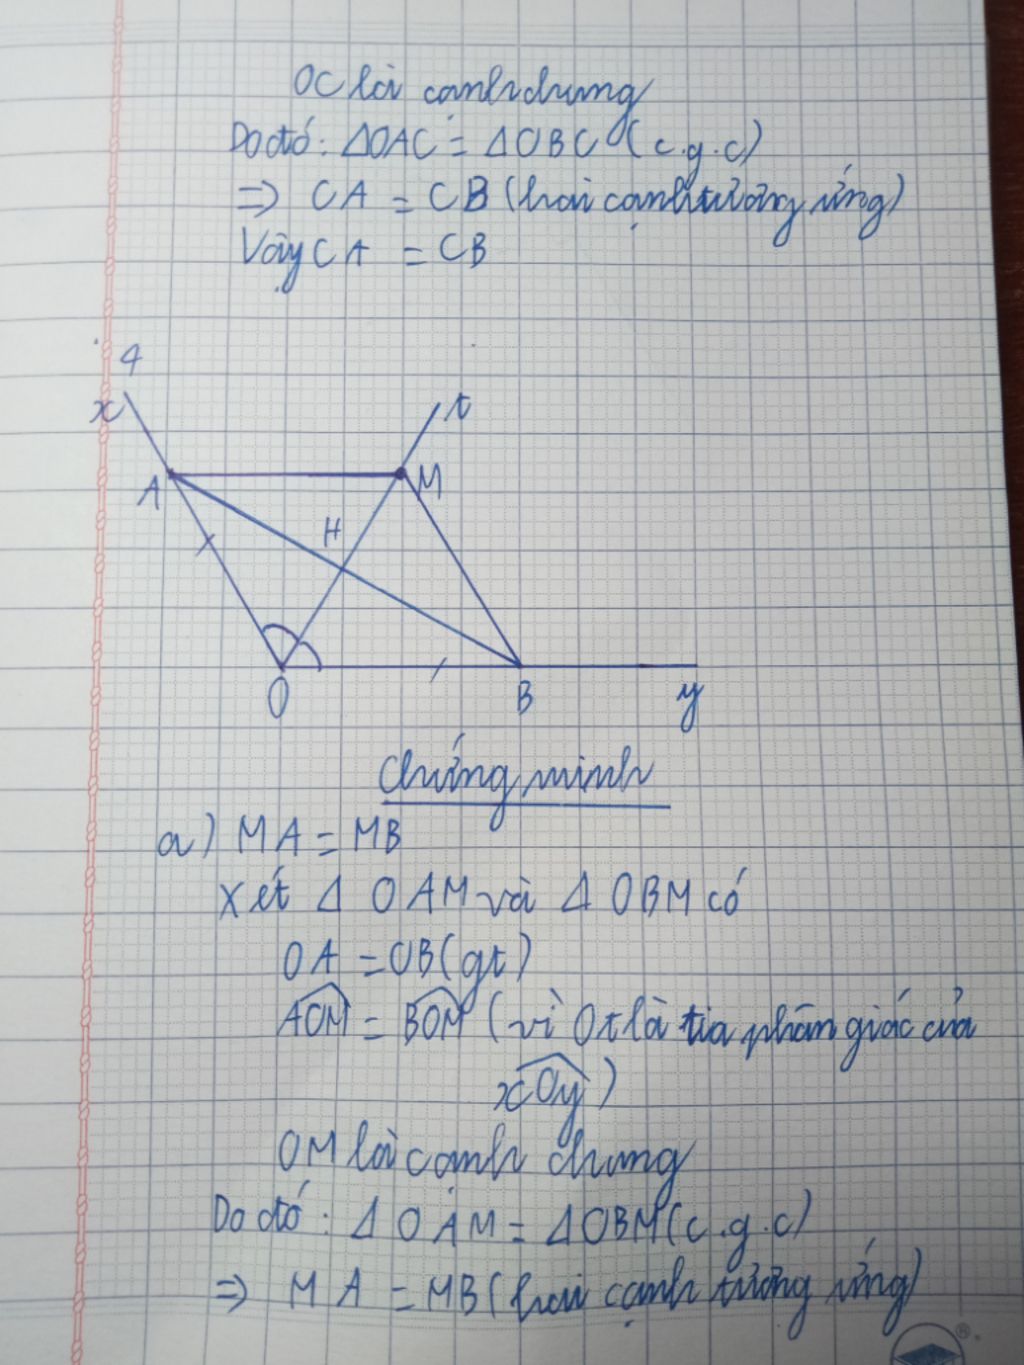 OC là cạnh chung
Do đó: ΔOAC = ΔOBC (c.g.c)
=> CA = CB (hai cạnh tương ứng)
Vậy CA = CB
4
x
t
A
M
H
O
B
y
Chứng minh
a) MA = MB
Xét Δ OAM và Δ OBM có
OA = OB (gt)
AOM = BOM (vì Ot là tia phân giác của
xOy)
OM là cạnh chung
Do đó: Δ OAM = ΔOBM (c.g.c)
=> MA = MB (hai cạnh tương ứng)
®